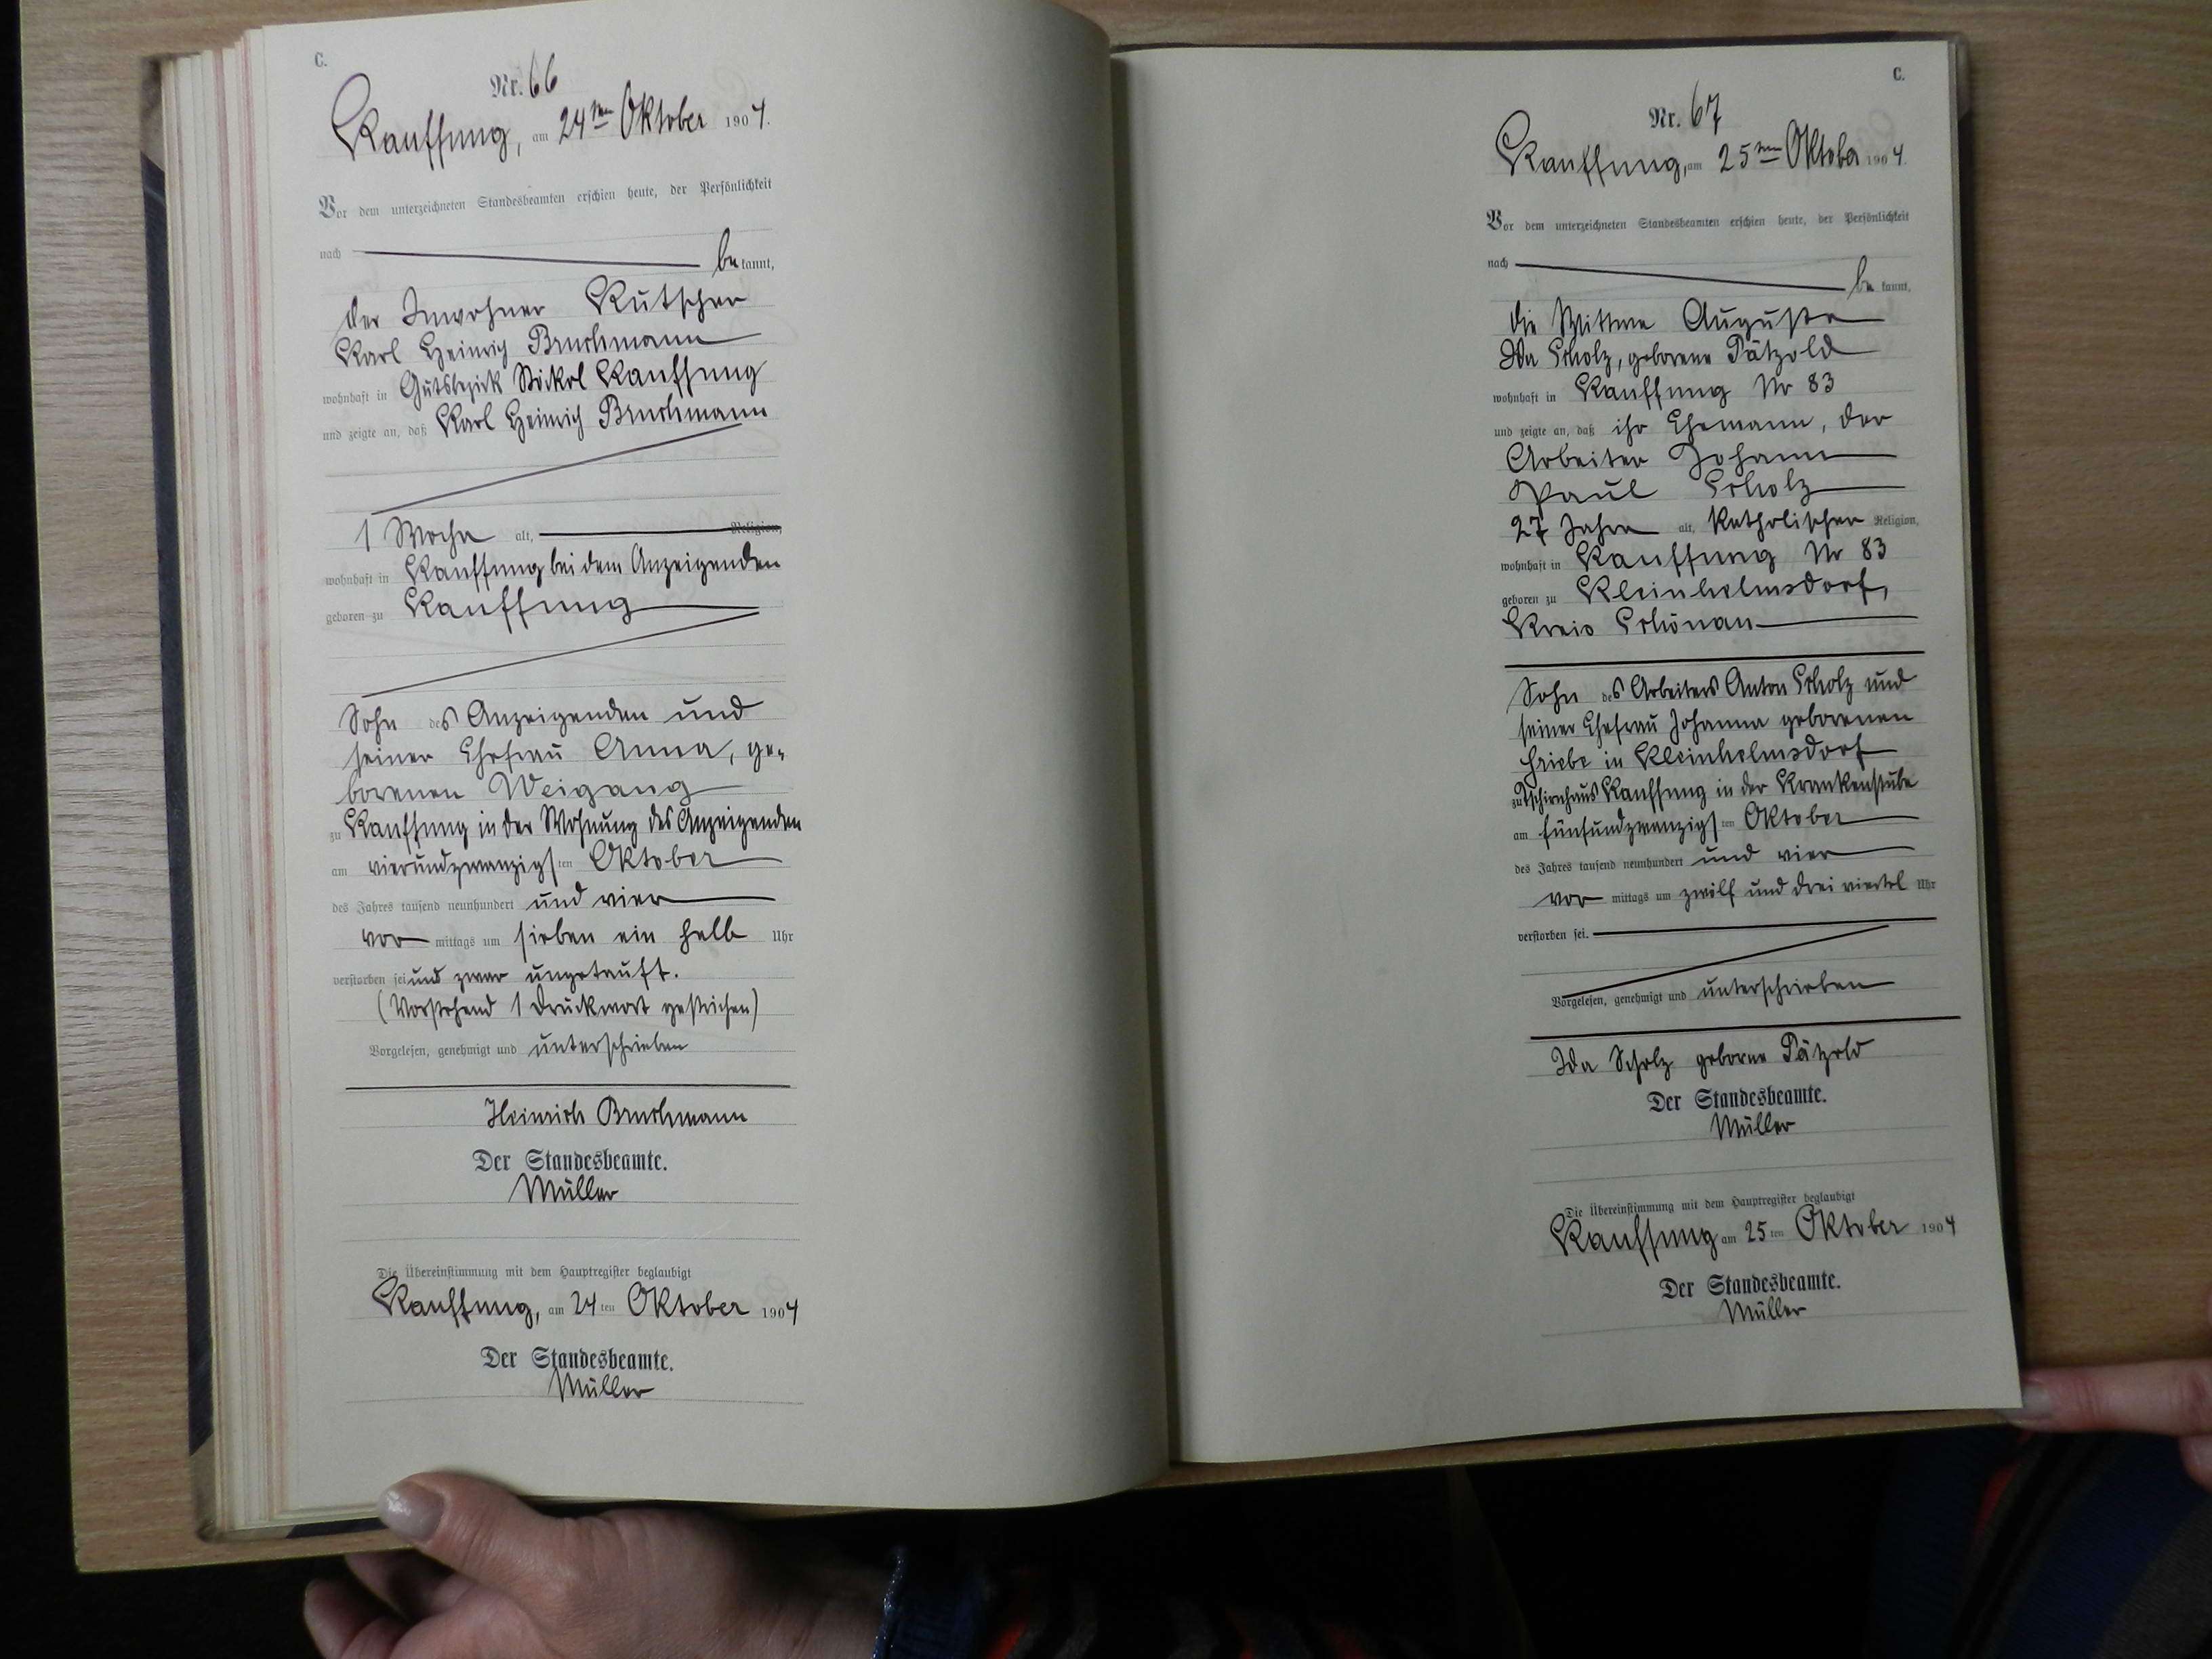 C.
Nr. 66
Kauffung, am 24ten Oktober 1904.
Vor dem unterzeichneten Standesbeamten erschien heute, der Persönlichkeit
nach bekannt,
der Inwohner Kutscher
Karl Heinrich Bruchmann
wohnhaft in Gutsbezirk Stöckel Kauffung
und zeigte an, daß Karl Heinrich Bruchmann
1 Woche alt, Religion,
wohnhaft in Kauffung bei dem Anzeigenden
geboren zu Kauffung
Sohn des Anzeigenden und
seiner Ehefrau Anna, ge-
borenen Weigang
zu Kauffung in der Wohnung des Anzeigenden
am vierundzwanzigsten Oktober
des Jahres tausend neunhundert und vier
vor mittags um sieben ein halb Uhr
verstorben sei und zwar ungetauft.
(Vorstehend 1 Druckwort gestrichen)
Vorgelesen, genehmigt und unterschrieben
Heinrich Bruchmann
Der Standesbeamte.
Müller
Die Übereinstimmung mit dem Hauptregister beglaubigt
Kauffung, am 24ten Oktober 1904
Der Standesbeamte.
Müller
C.
Nr. 67
Kauffung, am 25ten Oktober 1904
Vor dem unterzeichneten Standesbeamten erschien heute, der Persönlichkeit
nach bekannt,
die Wittwe Auguste
Ida Scholz, geborene Pätzold
wohnhaft in Kauffung Nr 83
und zeigte an, daß ihr Ehemann, der
Arbeiter Johann
Paul Scholz
27 Jahre alt, katholischer Religion,
wohnhaft in Kauffung Nr 83
geboren zu Kleinhelmsdorf,
Kreis Schönau
Sohn des Arbeiters Anton Scholz und
seiner Ehefrau Johanna geborenen
Friebe in Kleinhelmsdorf
zu Tschirnhaus Kauffung in der Krankenstube
am fünfundzwanzigsten Oktober
des Jahres tausend neunhundert und vier
vor mittags um zwölf und drei viertel Uhr
verstorben sei.
Vorgelesen, genehmigt und unterschrieben
Ida Scholz geborne Pätzold
Der Standesbeamte.
Müller
Die Übereinstimmung mit dem Hauptregister beglaubigt
Kauffung am 25ten Oktober 1904
Der Standesbeamte.
Müller